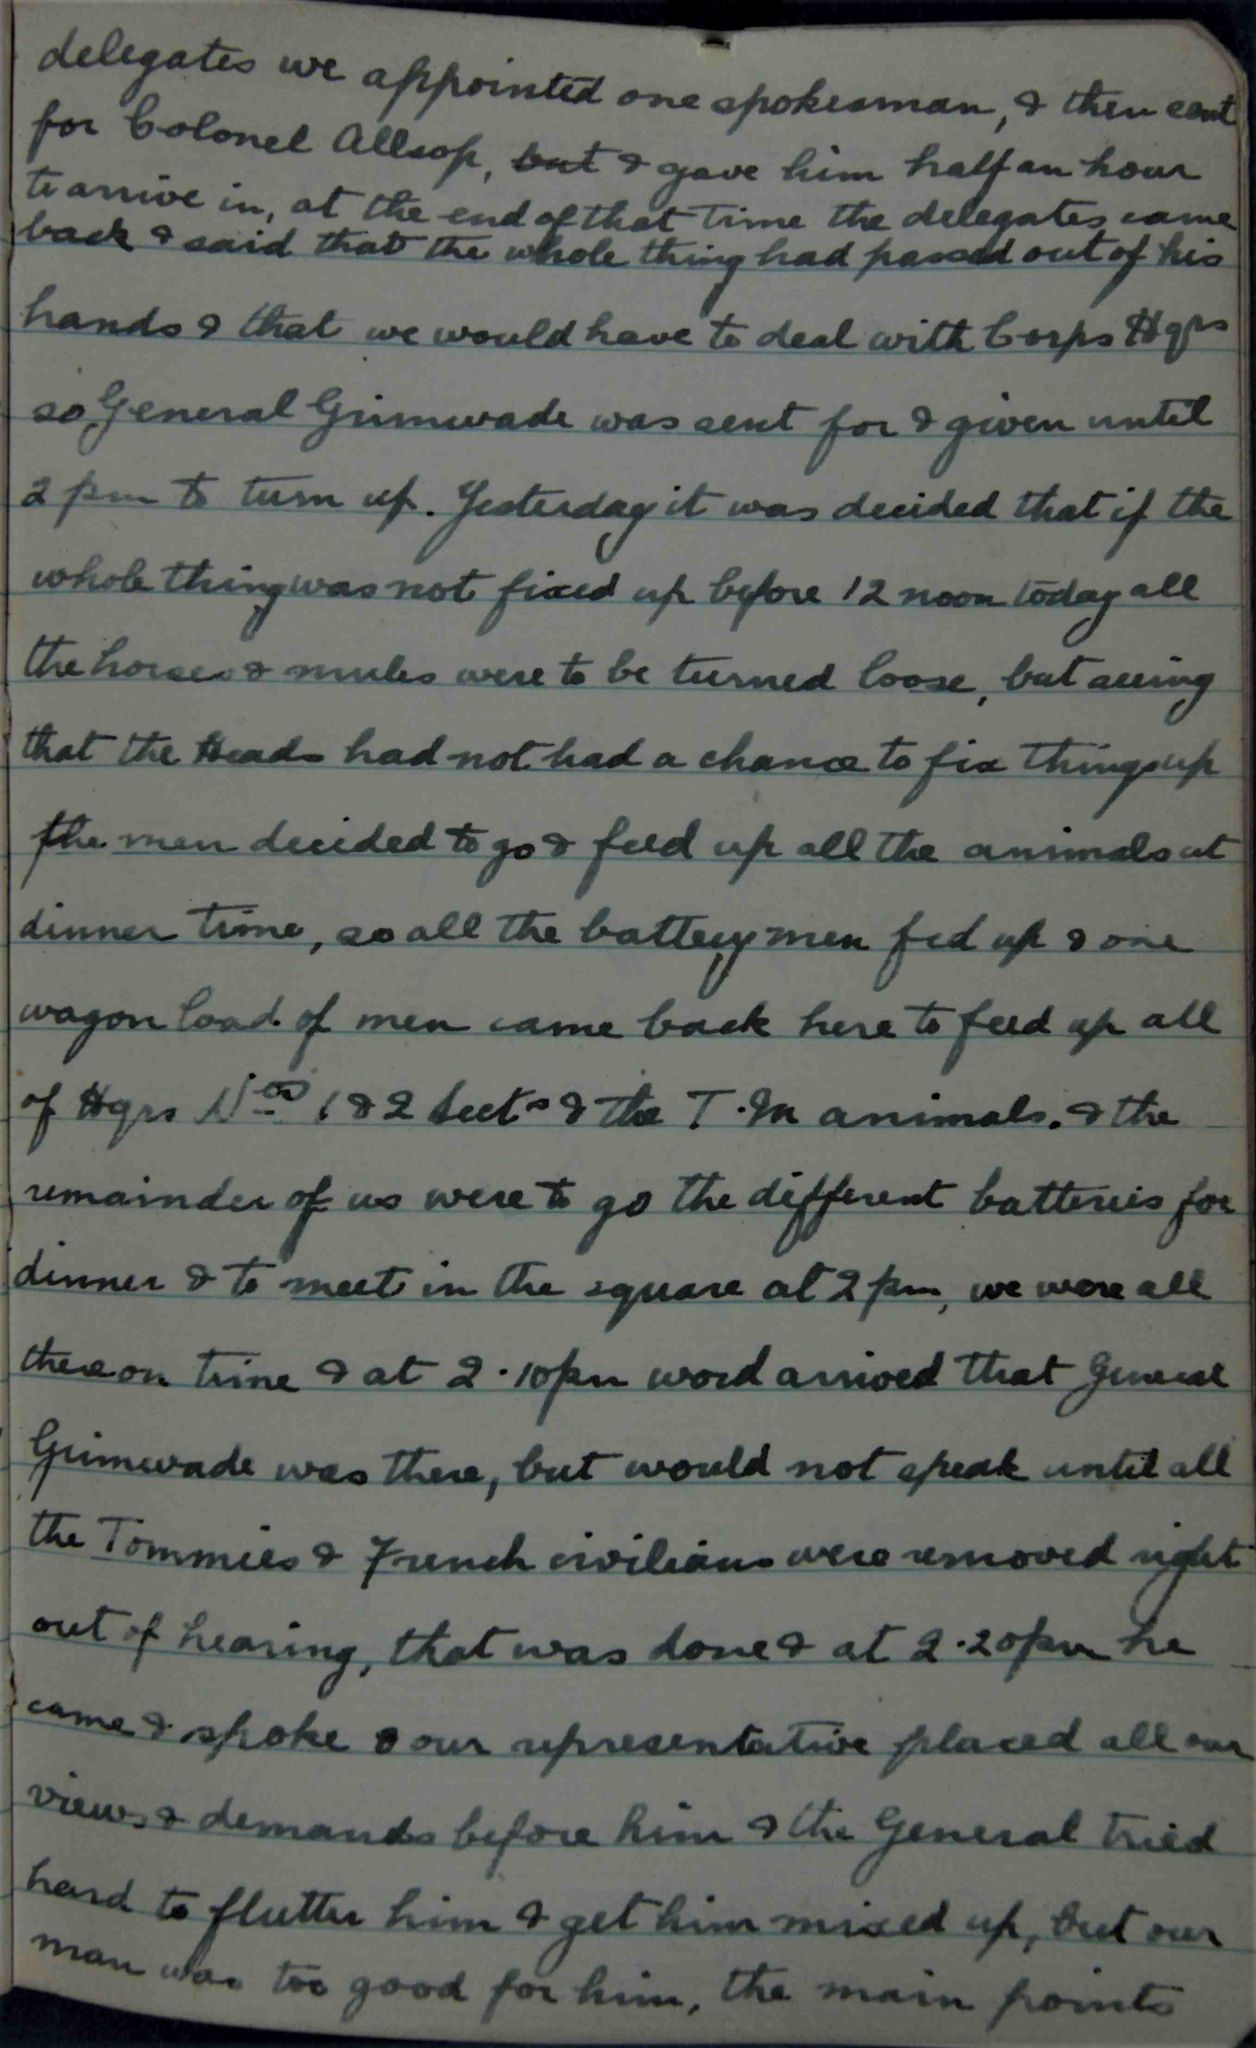 delegates we appointed one spokesman, & then sent
for Colonel Allsop, but & gave him half an hour
to arrive in, at the end of that time the delegates came
back & said that the whole thing had passed out of his
hands & that we would have to deal with Corps Hqrs
so General Grimwade was sent for & given until
2 pm to turn up. Yesterday it was decided that if the
whole thing was not fixed up before 12 noon today all
the horses & mules were to be turned loose, but seeing
that the Heads had not had a chance to fix things up
the men decided to go & feed up all the animals at
dinner time, so all the battery men fed up & one
wagon load of men came back here to feed up all
of Hqrs Nos 1 & 2 Sects & the T.M animals. & the
remainder of us were to go the different batteries for
dinner & to meet in the square at 2 pm, we were all
there on time & at 2.10 pm word arrived that General
Grimwade was there, but would not speak until all
the Tommies & French civilians were removed right
out of hearing, that was done & at 2.20 pm he
came & spoke & our representative placed all our
views & demands before him & the General tried
hard to flutter him & get him mixed up, but our
man was too good for him, the main points